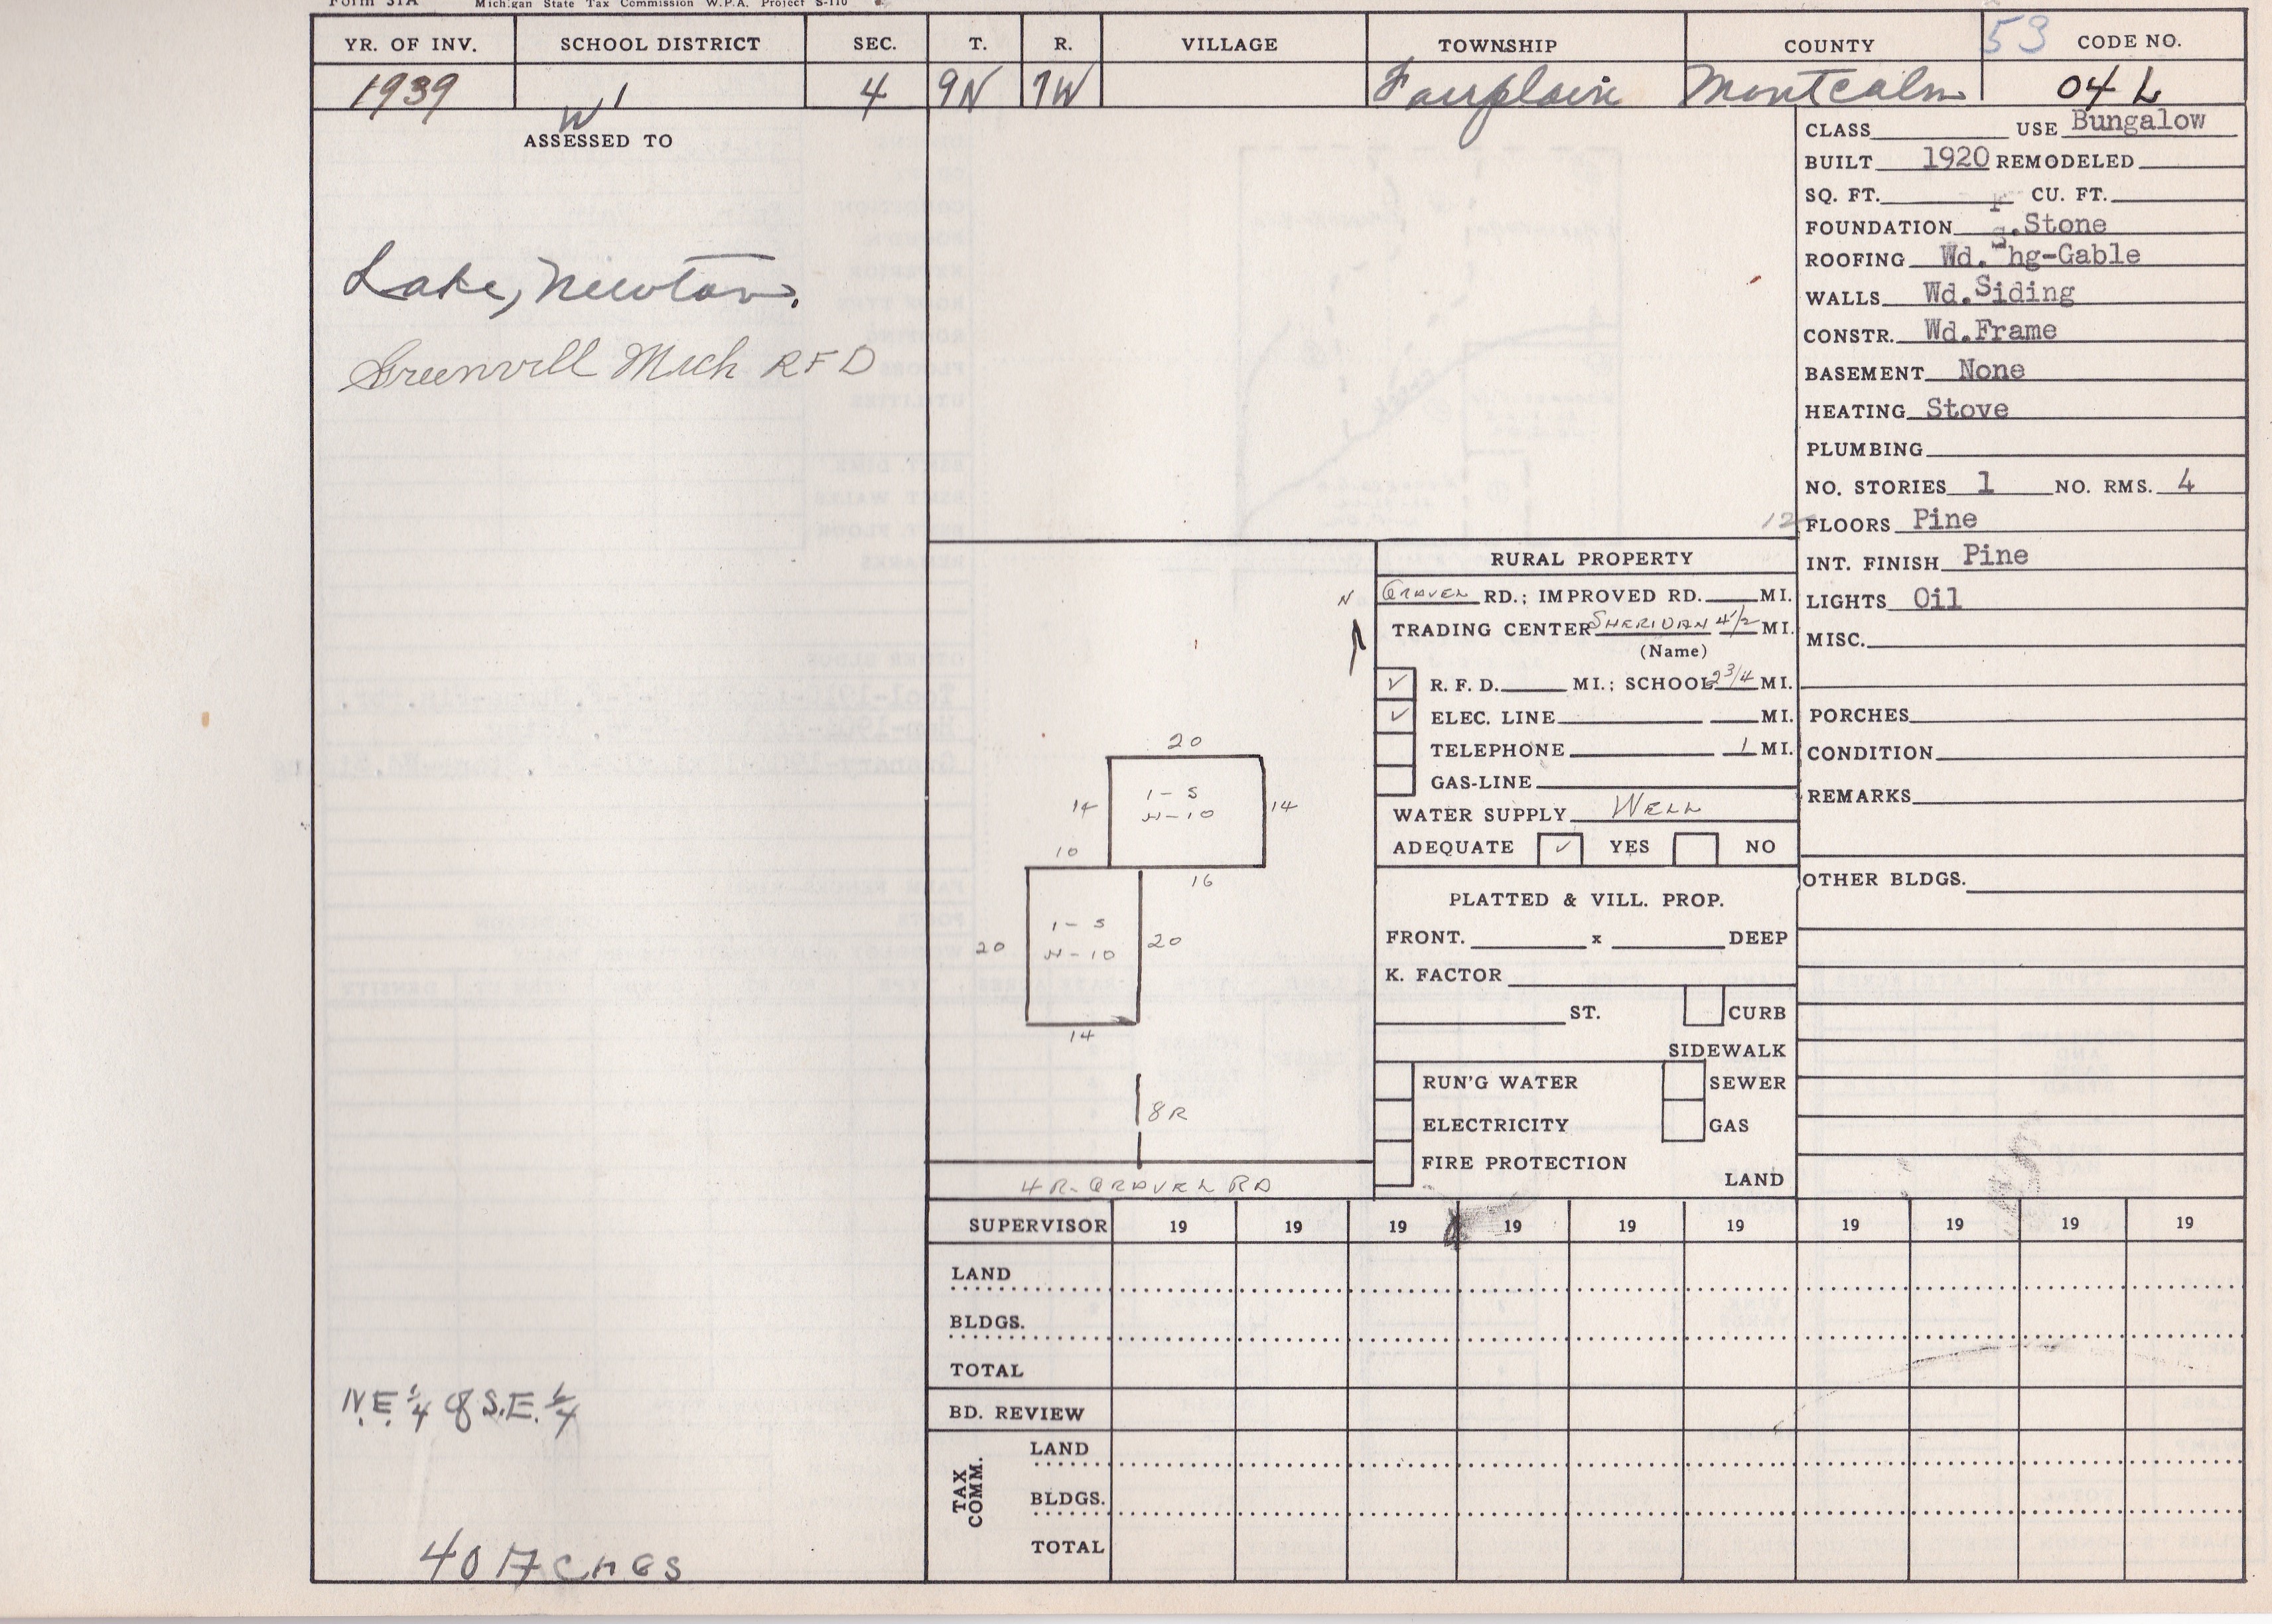 Form 31A Michigan State Tax Commission W.P.A. Project S-110
YR. OF INV. SCHOOL DISTRICT SEC. T. R. VILLAGE TOWNSHIP COUNTY 53 CODE NO.
1939 W 1 4 9N 7W Fairplain Montcalm 04 L
ASSESSED TO
Lake, Newton.
Greenvill Mich RFD
N.E. 1/4 of S.E. 1/4
40 Acres
N
20
14 1-S 14
H-10
10
16
1-S
20 H-10 20
14
8R
4 R. GRAVEL RD
12
RURAL PROPERTY
GRAVEL RD.; IMPROVED RD. MI.
TRADING CENTER SHERIDAN 4 1/2 MI.
(Name)
✓ R. F. D. MI.; SCHOOL 2 3/4 MI.
✓ ELEC. LINE MI.
TELEPHONE 1 MI.
GAS-LINE
WATER SUPPLY WELL
ADEQUATE ✓ YES NO
PLATTED & VILL. PROP.
FRONT. x DEEP
K. FACTOR
ST. CURB
SIDEWALK
RUN'G WATER SEWER
ELECTRICITY GAS
FIRE PROTECTION
LAND
CLASS USE Bungalow
BUILT 1920 REMODELED
SQ. FT. CU. FT.
FOUNDATION F.Stone
ROOFING Wd.Shg-Gable
WALLS Wd.Siding
CONSTR. Wd.Frame
BASEMENT None
HEATING Stove
PLUMBING
NO. STORIES 1 NO. RMS. 4
FLOORS Pine
INT. FINISH Pine
LIGHTS Oil
MISC.
PORCHES
CONDITION
REMARKS
OTHER BLDGS.
SUPERVISOR 19 19 19 19 19 19 19 19 19 19
LAND
BLDGS.
TOTAL
BD. REVIEW
TAX COMM.
LAND
BLDGS.
TOTAL